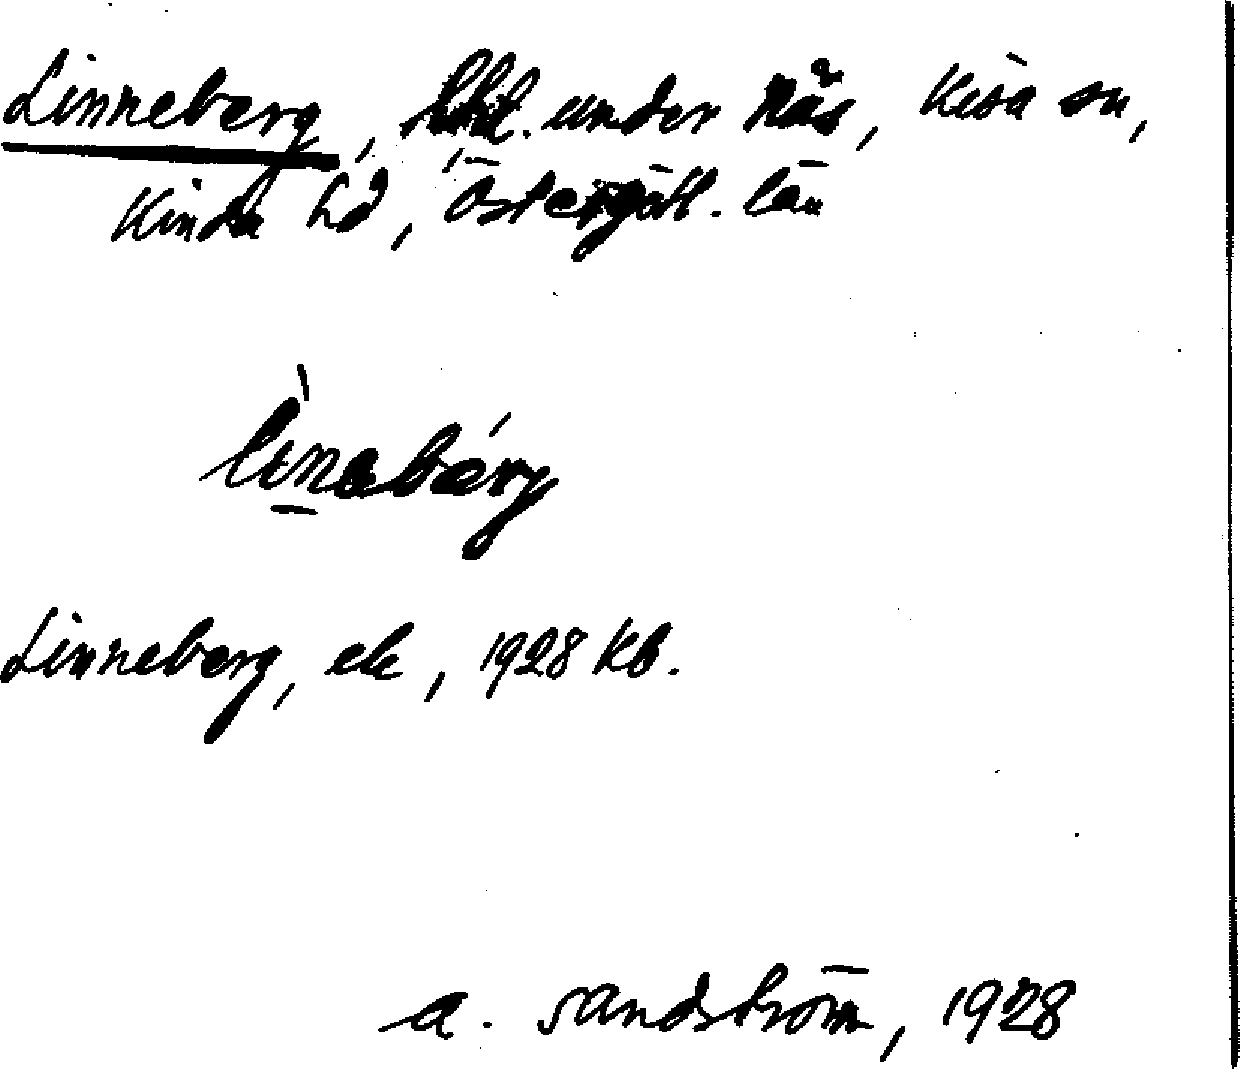 Linneberg, lht. under Nås, Kisa sn,
Kinda hd, Östergötl. län
lìnebárg
Linneberg, ek, 1928 Kb.
A. Sandström, 1928